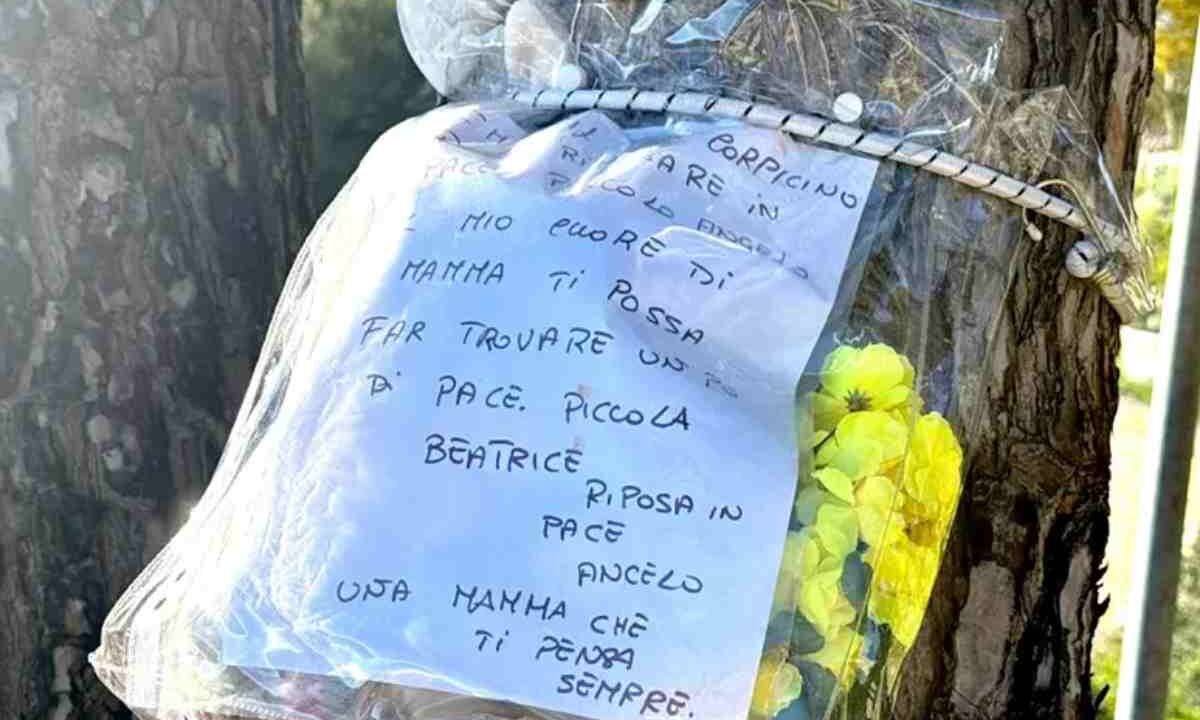 CORPICINO
ARE IN
PACE PICCOLO ANGELO
MIO CUORE DI
MAMMA TI POSSA
FAR TROVARE UN
DI PACE. PICCOLA
BEATRICE
RIPOSA IN
PACE
ANGELO
UNA MAMMA CHE
TI PENSA
SEMPRE.